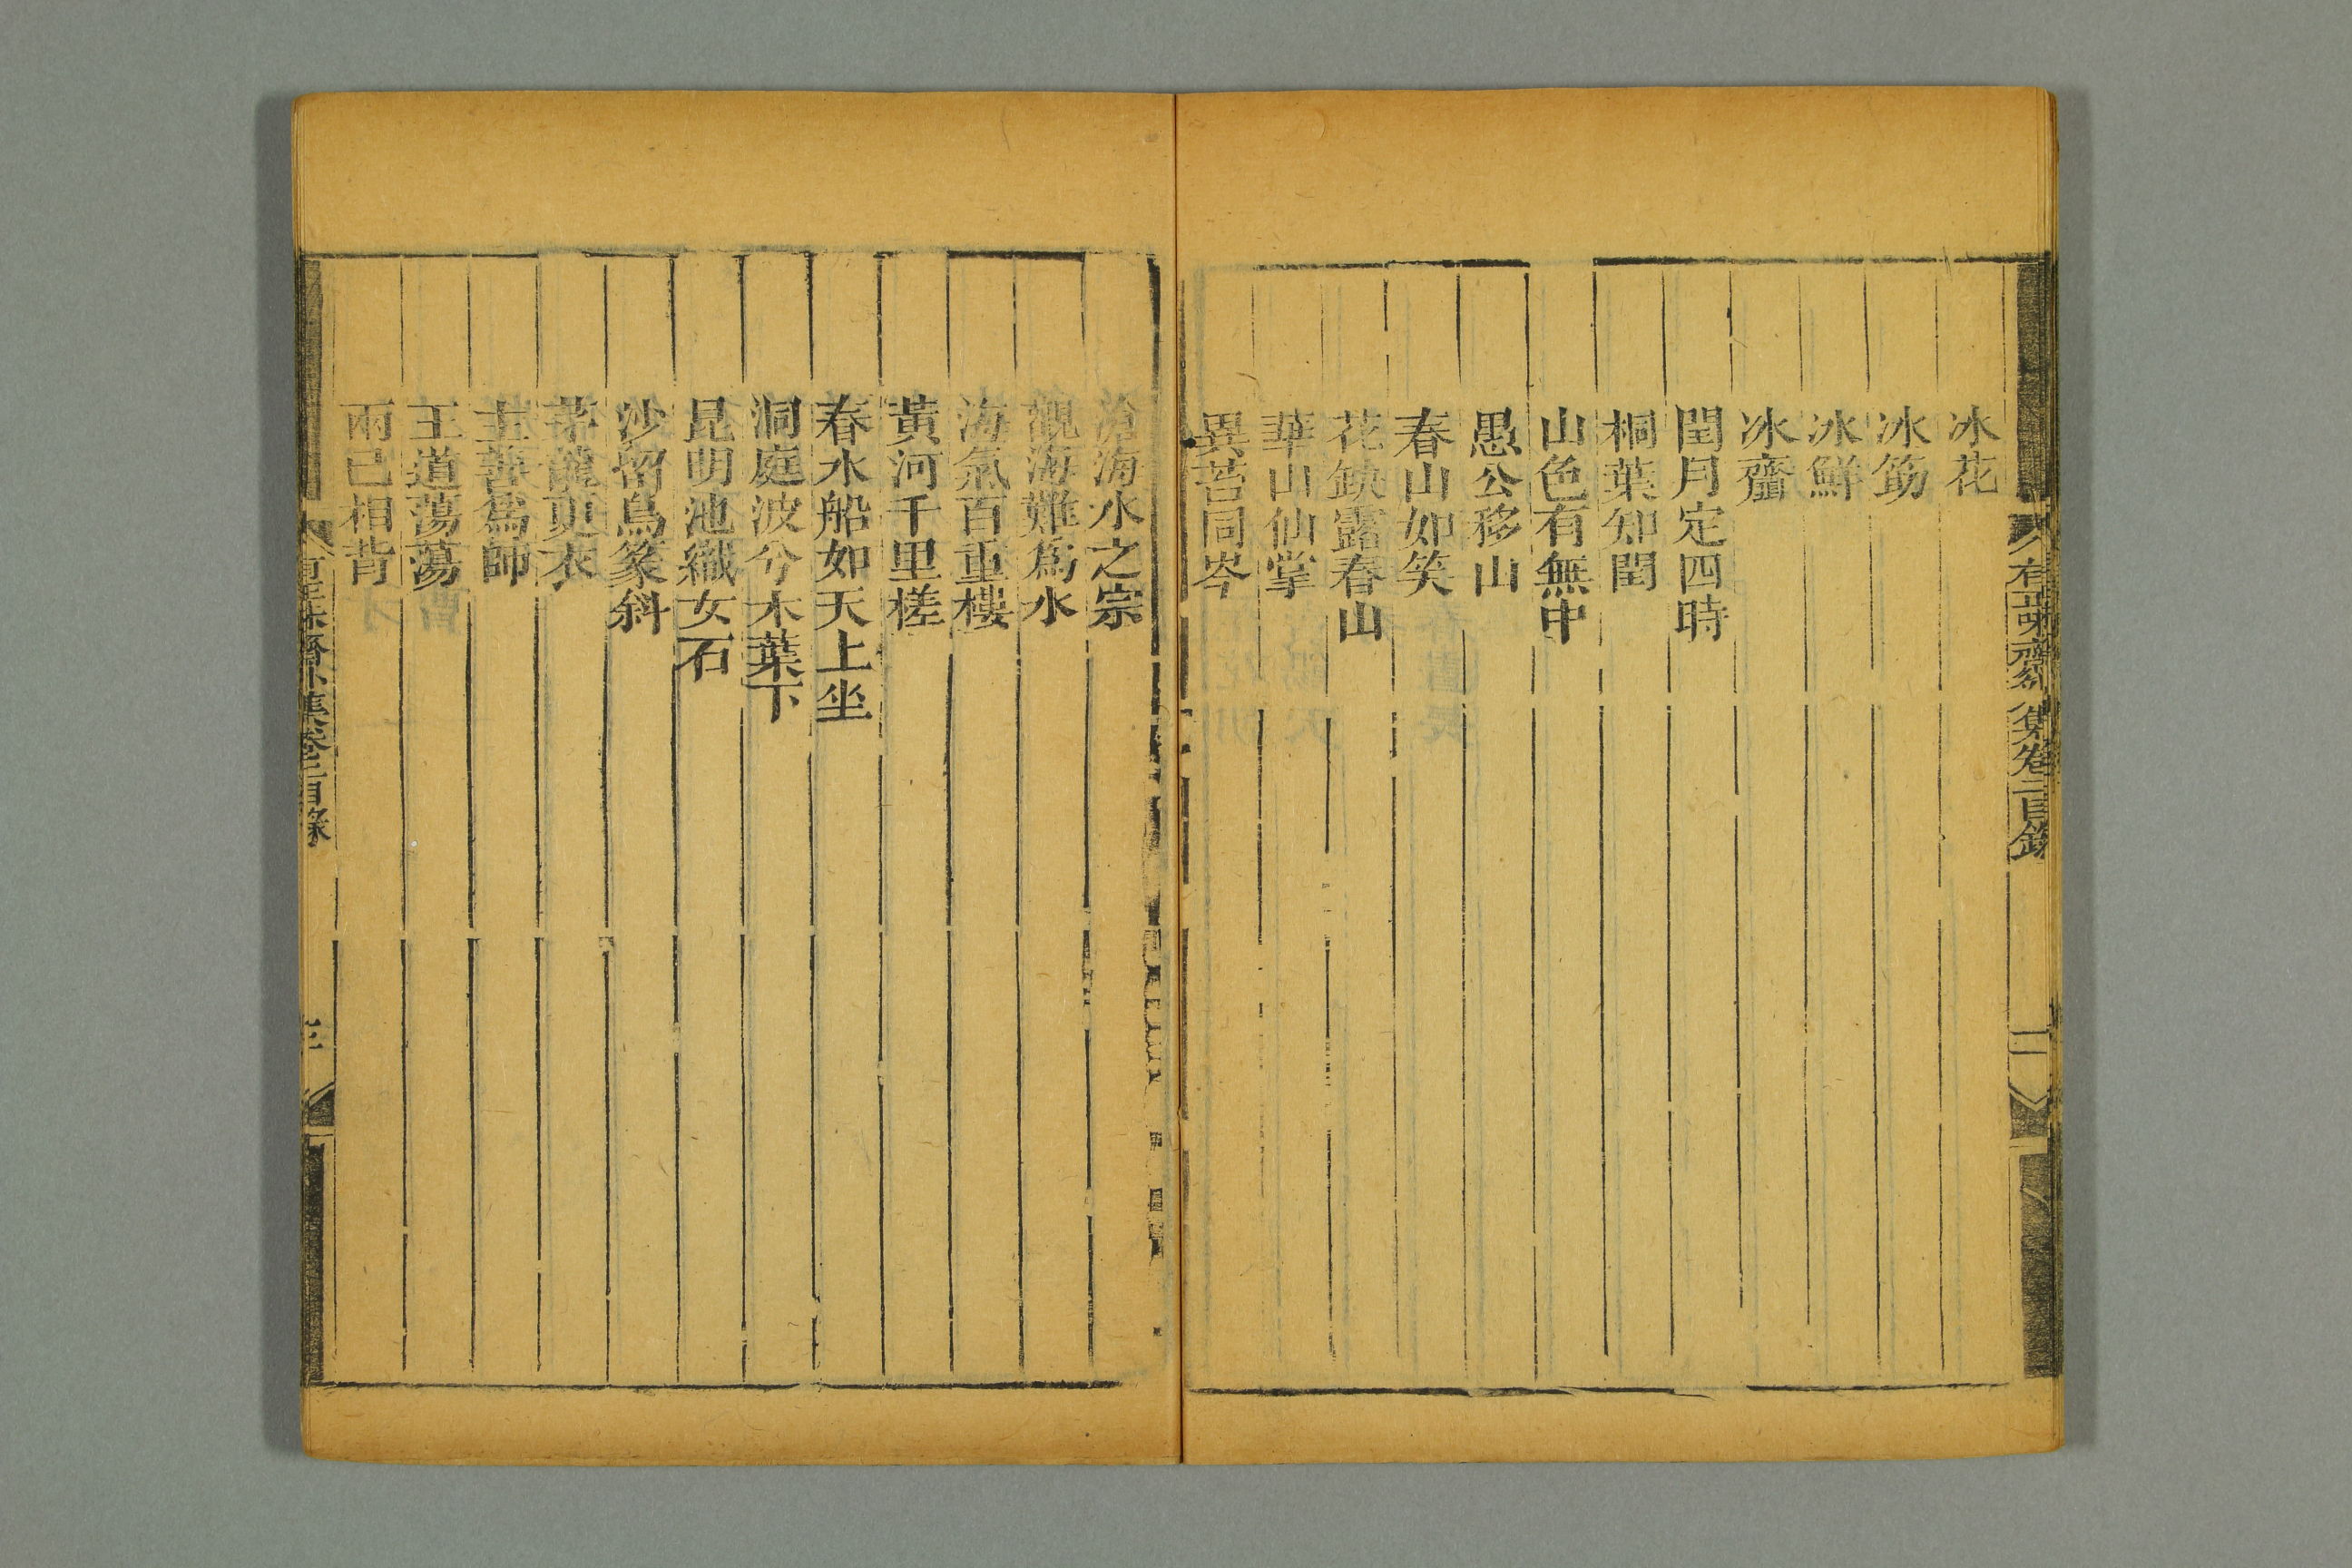 有正味齋外集卷二目錄
二
冰花
冰筯
冰鮮
冰齏
閏月定四時
桐葉知閏
山色有無中
愚公移山
春山如笑
花缺露春山
華山仙掌
異苔同岑
滄海水之宗
觀海難爲水
海氣百重樓
黃河千里槎
春水船如天上坐
洞庭波兮木葉下
昆明池織女石
沙留鳥篆斜
茅龍更衣
主善爲師
王道蕩蕩
兩己相背
有正味齋外集卷二目錄
三